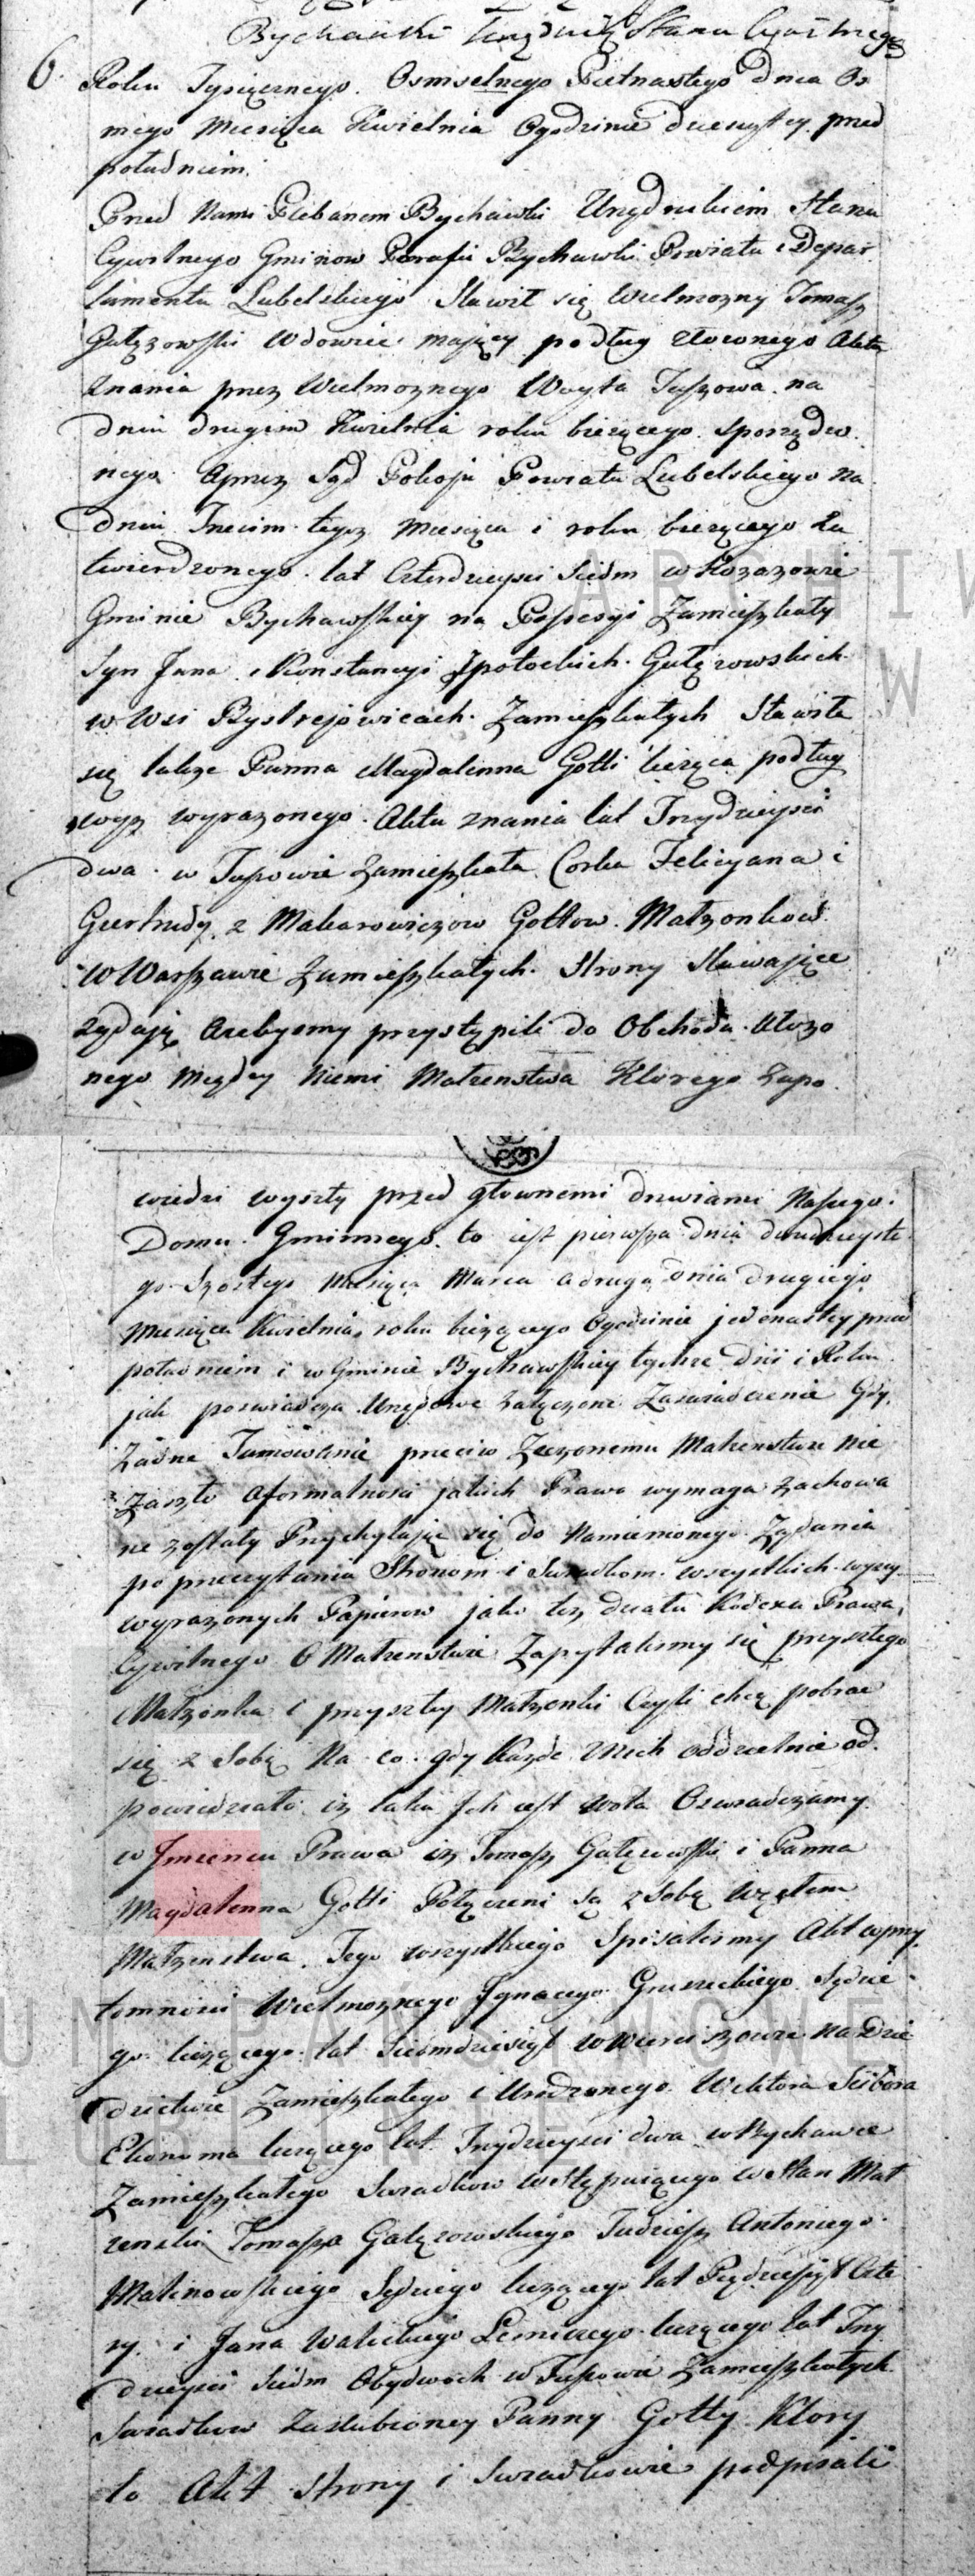 Bychawski Urzędnik Stanu Cywilnego
6. Roku Tysiącznego Osmsetnego Pietnastego dnia Os
mego Miesiąca Kwietnia O godzinie dziesiątey przed
południem.
Przed Nami Plebanem Bychawki Urzędnikiem Stanu
Cywilnego Gminow Parafii Bychawki Powiatu i Depar
tamentu Lubelskiego Stawił się Wielmozny Tomasz
Gałęzowski Wdowiec maiący podług złozonego Aktu
Znania przez Wielmoznego Woyta Tuszowa na
dniu drugim Kwietnia roku bieżącego sporządzo
nego a przez Sąd Pokoju Powiatu Lubelskiego na
dniu Trzecim tegoz Miesiąca i roku bieżącego za
twierdzonego lat Czterdzieysci Siedm w
Gminie Bychawskiey na Possesyi Zamieszkały
Syn Jana i Konstancyi Gałęzowskich
w Wsi Bystrejowicach Zamieszkałych Stawiła
się takze Panna Magdalenna Gotti licząca podług
wyz wyrazonego Aktu znania lat Trzydzieysci
dwa w Tuszowie Zamieszkała Corka Felicyana i
Giertrudy z Makarowiczow Gottow Małzonkow
w Warszawie Zamieszkałych. Strony Stawaiące
ządaią Azebysmy przystąpili do Obchodu Ułozo
nego Między Niemi Małzenstwa Ktorego Zapo
wiedzi wyszły przed głownemi drzwiami Naszego
Domu Gminnego to iest pierwsza dnia dwudziestego
go Szostego Miesiąca Marca a druga dnia drugiego
Miesiąca Kwietnia roku bieżącego O godzinie jedenastey przed
południem i w Gminie Bychawskiey tychze dni i Roku
jak poswiadcza Urzędowe załączone Zaswiadczenie Gdy
Żadne Tamowanie przeciw Rzeczonemu Małzenstwu nie
Zaszło a formalnosci jakich Prawo wymaga zachowa
ne zostały Przychylaiąc się do Namienionego Ządania
po przeczytaniu Stronom i Swiadkom wszystkich wyzey
wyrazonych Papierow jako tez działu Kodexu Prawa
Cywilnego O Małzenstwie Zapytalismy się przyszłego
Małzonka i przyszłey Małzonki Czyli chcą pobrac
się z Sobą Na co gdy Kazde z Nich oddzielnie od
powiedziało iz taka Jch iest wola Oswiadczamy
w Jmieniu Prawa iz Tomasz Gałęzowski i Panna
Magdalenna Gotti Połączeni są z Sobą Węzłem
Małzenstwa. Tego wszystkiego Spisalismy Akt w przy
tomnosci Wielmoznego Jgnacego Gruszeckiego Sędzie
go liczącego lat Siedmdziesiąt w na Dzie
dzictwie Zamieszkałego i Urodzonego Wiktora Scibora
Ekonoma liczącego lat Trzydzieysci dwa w Bychawce
Zamieszkałego Swiadkow wstępuiącego w Stan Mał
zenski Tomasza Gałęzowskiego Tudziesz Antoniego
Malinowskiego Sędziego liczącego lat Pięcdziesiąt Czte
ry i Jana Walickiego liczącego lat Trzy
dzieysci Siedm Obydwoch w Tuszowie Zamieszkałych
Swiadkow Zaslubioney Panny Gotty Ktory
to Akt Strony i Swiadkowie podpisali
ARCHIW
W
UM PAŃSTWOWE
LUBLINIE